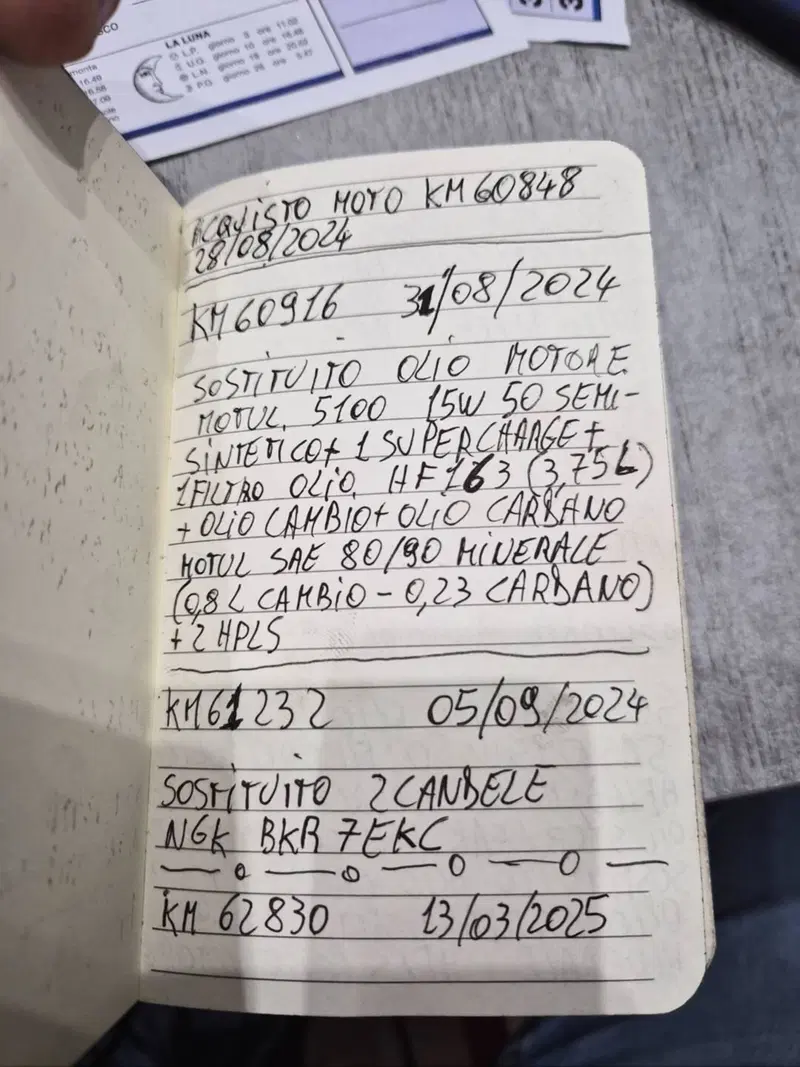 SCO
LA LUNA
L.P. giorno 3 ore 11.02
U.G. giorno 10 ore 16.48
L.N. giorno 18 ore
P.G. giorno 26 ore
monta
16.49
16.58
ACQUISTO MOTO KM 60848
28/08/2024
KM 60916 31/08/2024
SOSTITUITO OLIO MOTORE
MOTUL 5100 15W 50 SEMI-
SINTETICO + 1 SUPERCHARGE +
1 FILTRO OLIO HF163 (3,75L)
+ OLIO CAMBIO + OLIO CARDANO
MOTUL SAE 80/90 MINERALE
(0,8 L CAMBIO - 0,23 CARDANO)
+ 2 HPLS
KM 61232 05/09/2024
SOSTITUITO 2 CANDELE
NGK BKR 7EKC
KM 62830 13/03/2025